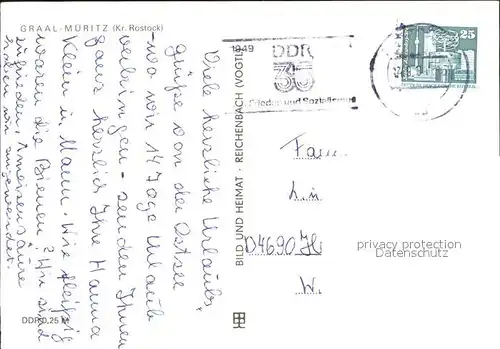 GRAAL-MÜRITZ (Kr. Rostock)
Viele herzliche Urlaubs-
grüße von der Ostsee
wo wir 14 Tage Urlaub
verbringen - senden Ihnen
ganz herzlich Ihre Hanna
Klein u. Mann. Wie fleißig
waren die Bienen? Wir sind
zufrieden, Ameisensäure
haben wir angewendet.
DDR 0,25 M
BILD UND HEIMAT · REICHENBACH (VOGTL)
1949
DDR
35
Frieden und Sozialismus
25
Fam.
D4690 H
W.
privacy protection
Datenschutz